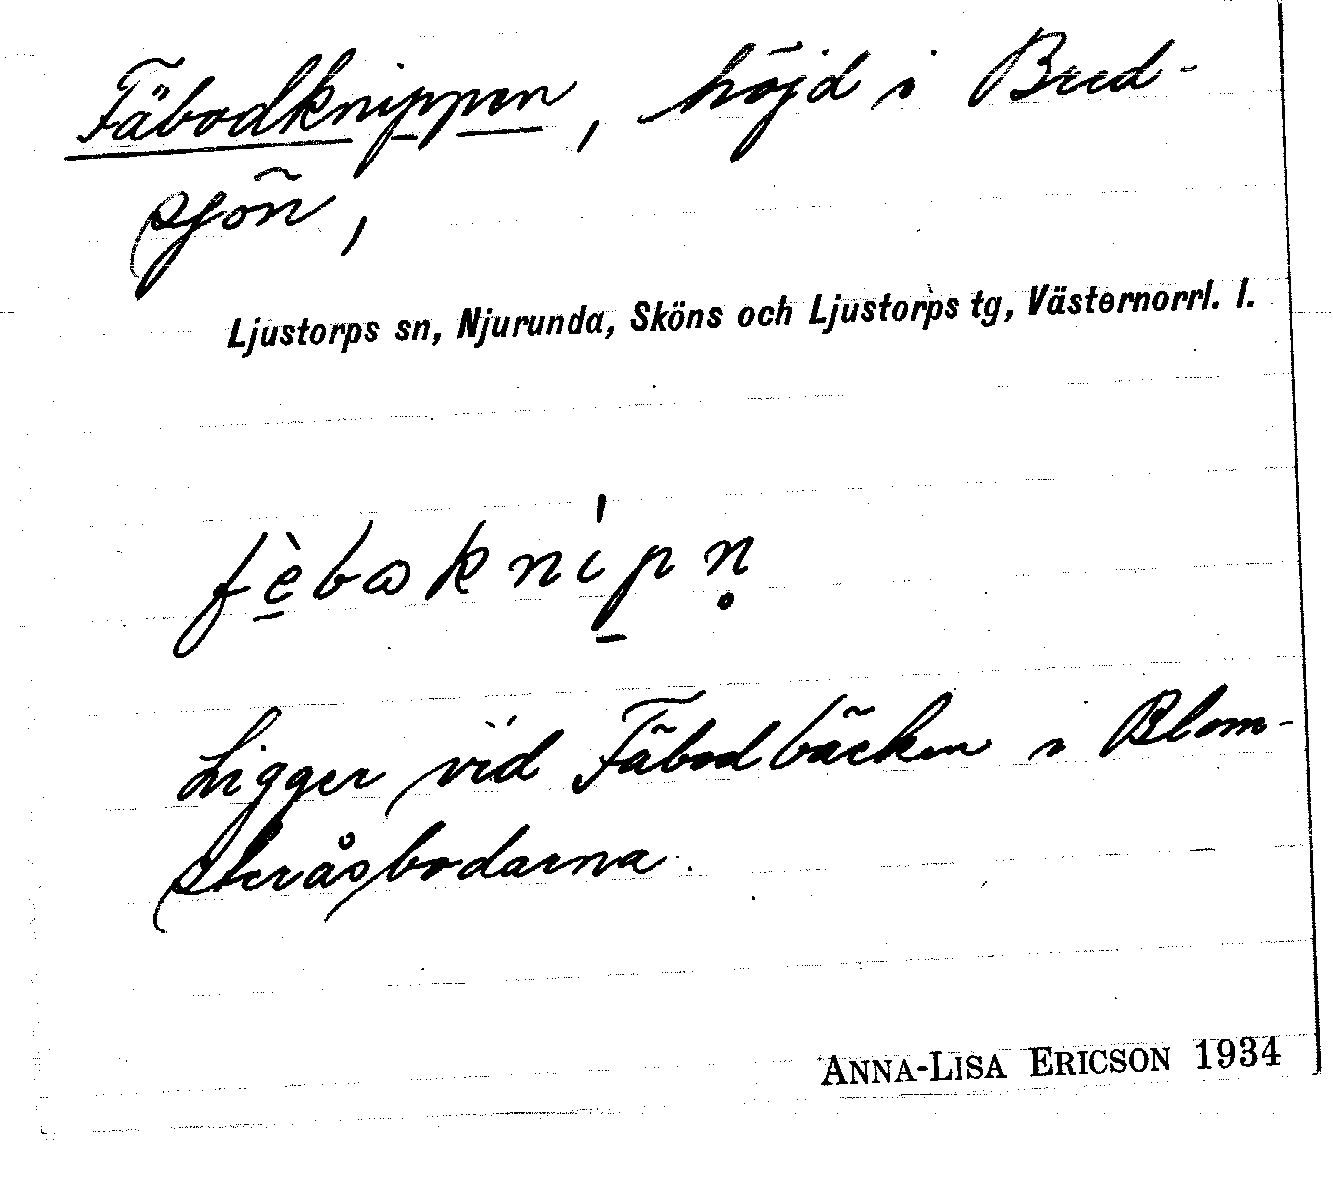 Fäbodknippen, höjd i Bred-
sjön,
Ljustorps sn, Njurunda, Sköns och Ljustorps tg, Västernorrl. l.
fèbɷknípn̥
Ligger vid Fäbodbäcken i Blom-
steråsbodarna.
ANNA-LISA ERICSON 1934